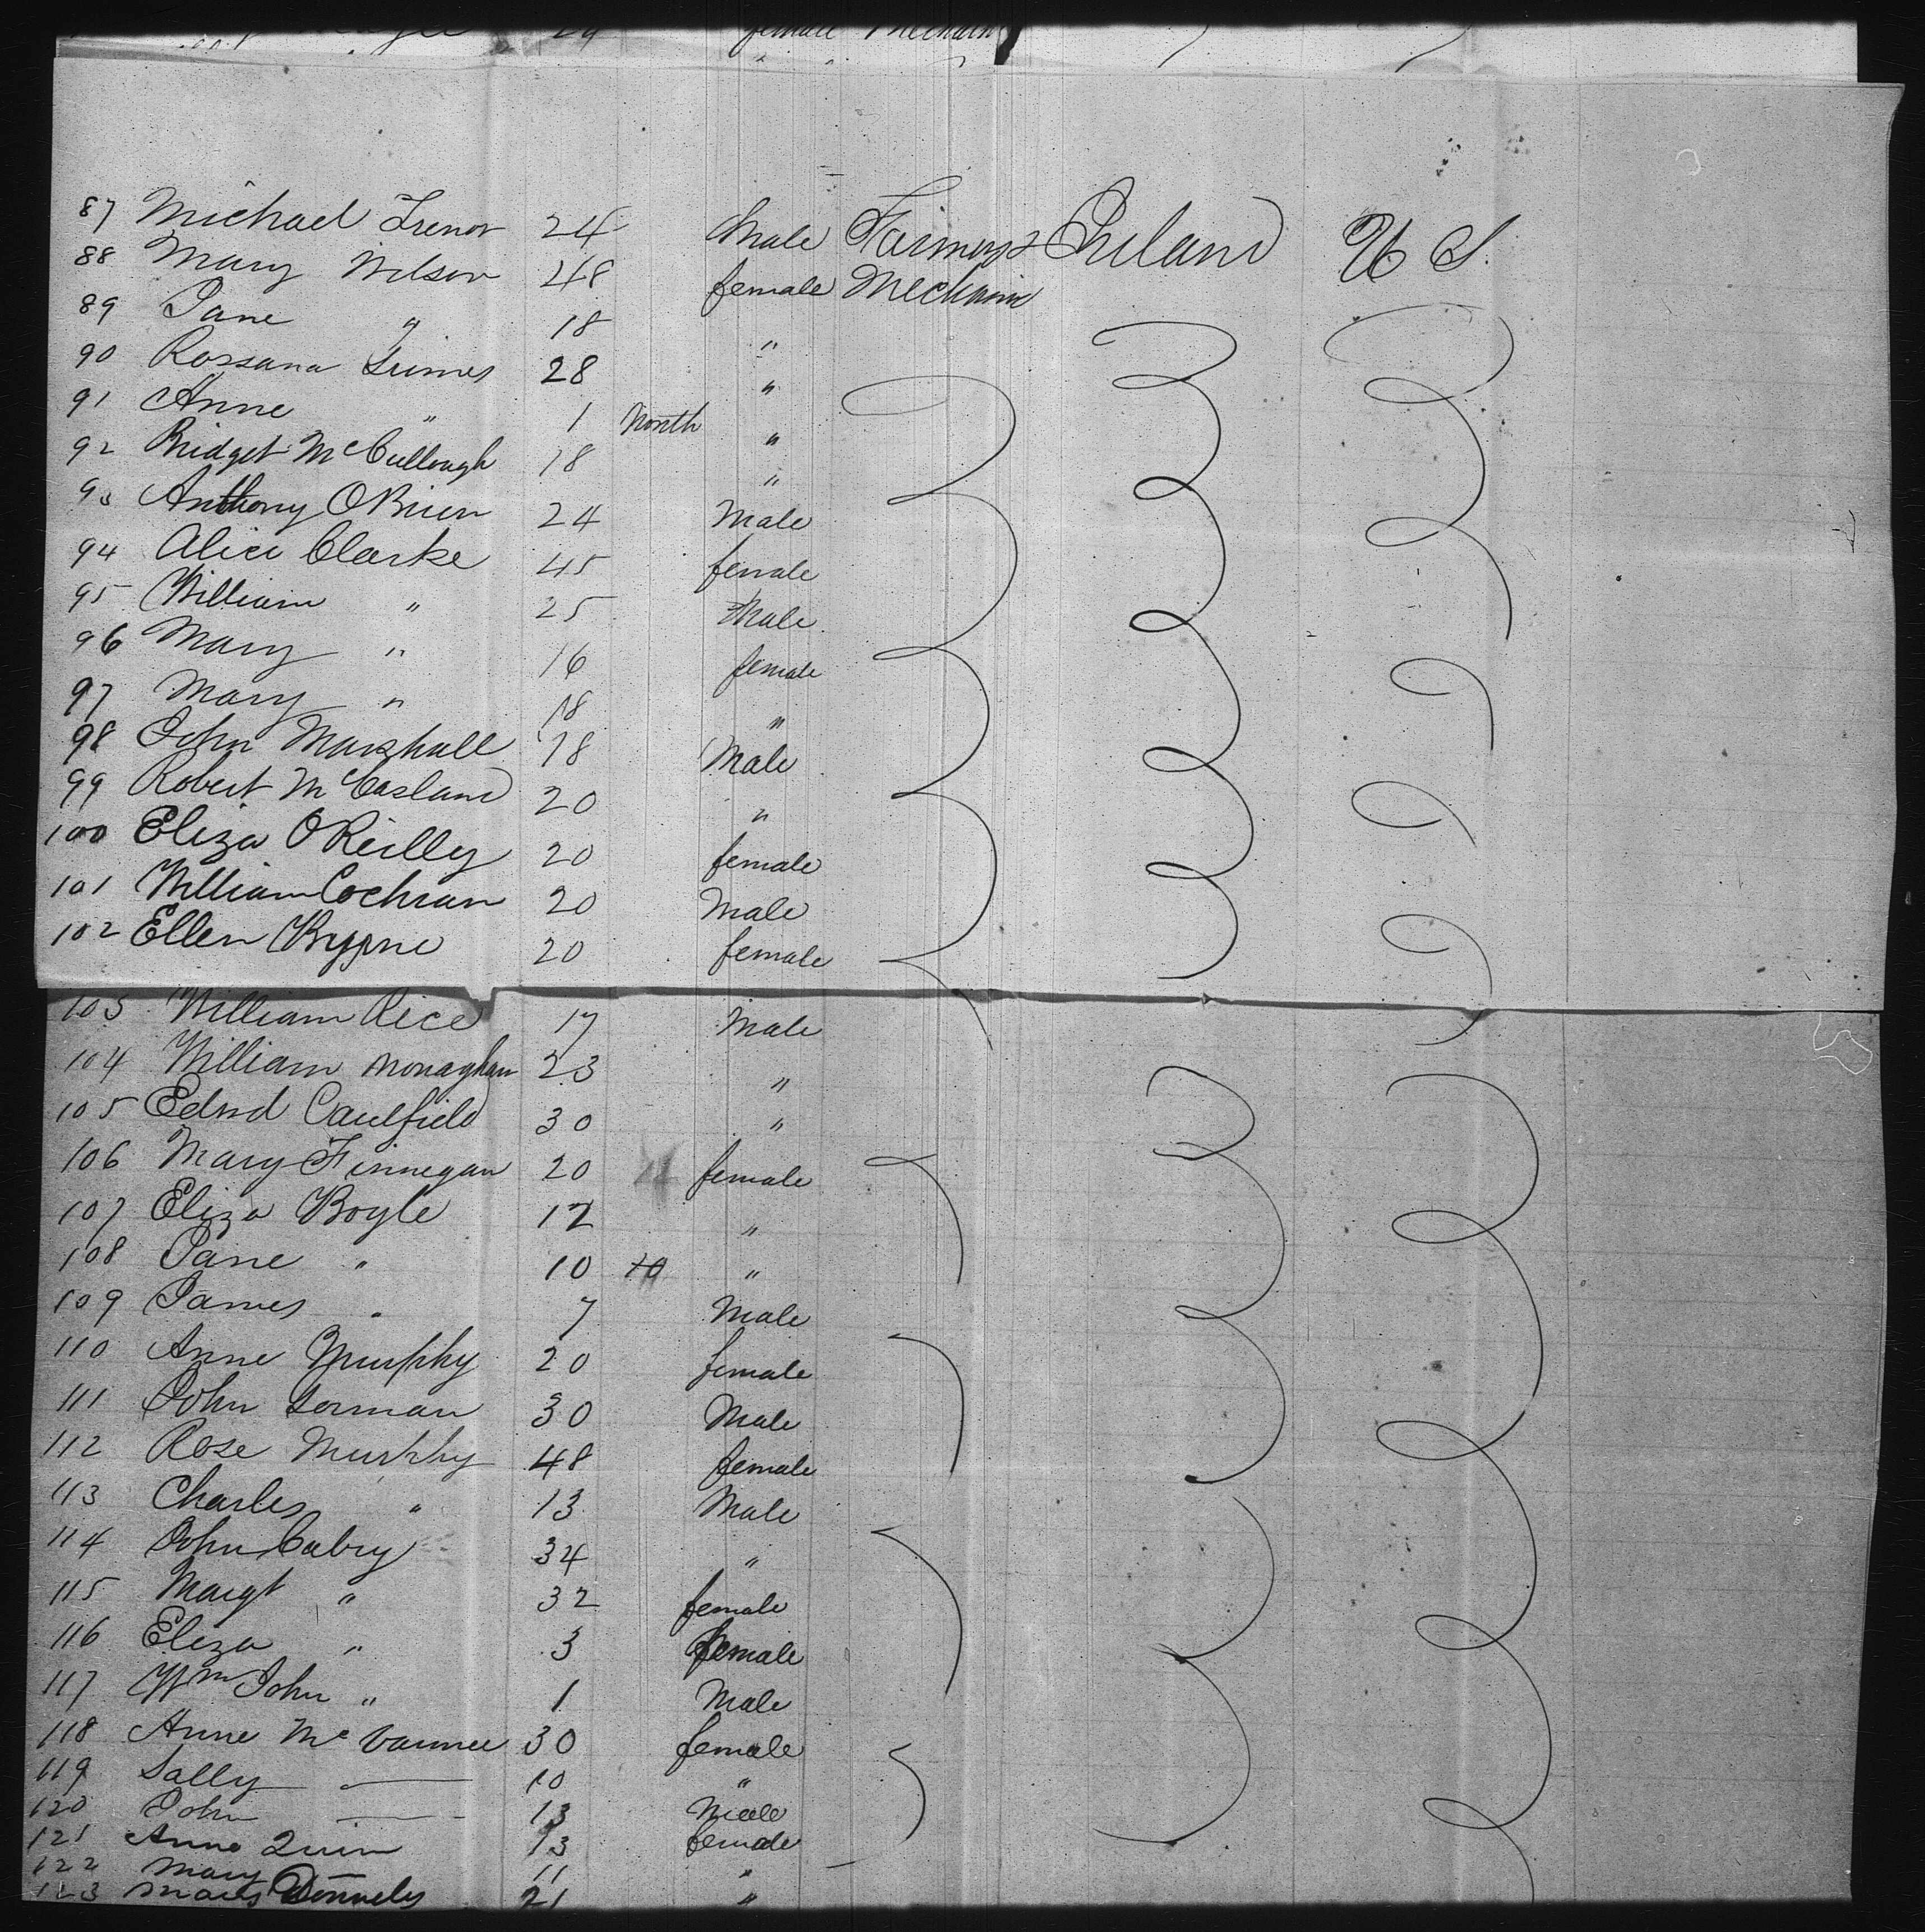 female Mechanic
87 Michael Trenor 24 Male Farmers Ireland U S.
88 Mary Wilson 48 female Mechanic
89 Jane " 18 "
90 Rossana Grimes 28 "
91 Anne " 1 Month "
92 Bridget McCullough 18 "
93 Anthony OBrien 24 Male
94 Alice Clarke 45 female
95 William " 25 Male
96 Mary " 16 female
97 Mary " 18 "
98 John Marshall 18 Male
99 Robert McCasland 20 "
100 Eliza OReilly 20 female
101 William Cochran 20 Male
102 Ellen Byrne 20 female
103 William Rice 17 Male
104 William Monaghan 23 "
105 Edwd Caulfield 30 "
106 Mary Finnegan 20 female
107 Eliza Boyle 12 "
108 Jane " 10 10 "
109 James " 7 Male
110 Anne Murphy 20 female
111 John Gorman 30 Male
112 Rose Murphy 48 female
113 Charles " 13 Male
114 John Cabry 34 "
115 Margt " 32 female
116 Eliza " 3 female
117 Wm John " 1 Male
118 Anne Mc 30 female
119 Sally — 10 "
120 John — 13 Male
121 Anne Quin 13 female
122 Mary — 11 "
123 Mary Donnely 21 "